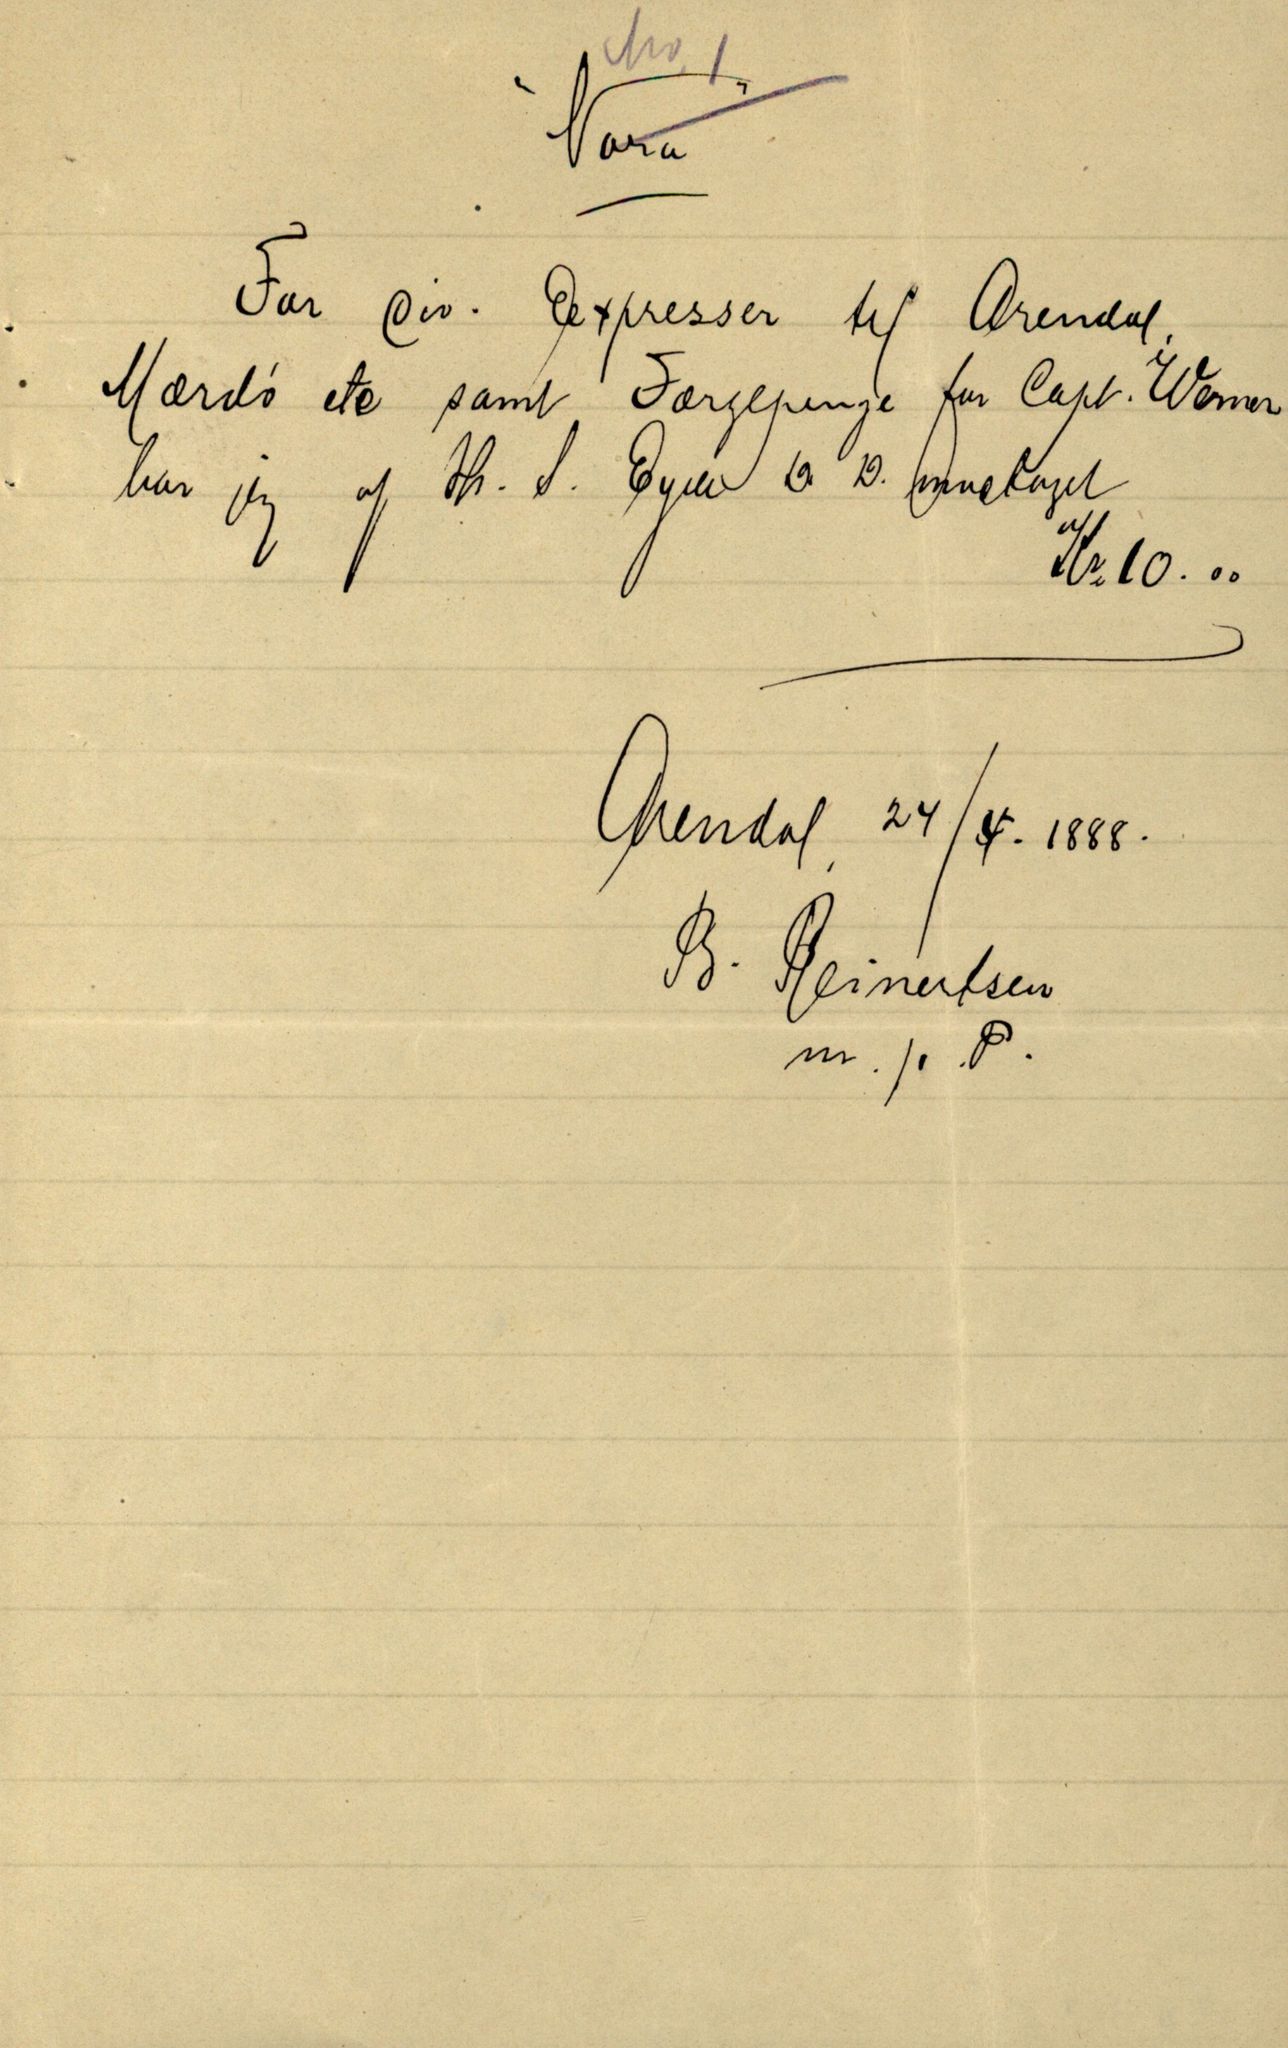 No. 1
"Nora"
For Div. Expresser til Arendal,
Mærdö etc samt Færgepenge for Capt. Werner
har jeg af Hr. S. Eyde D. D. modtaget
Kr. 10. oo
Arendal, 24/4. 1888.
B. Reinertsen
m. p. P.